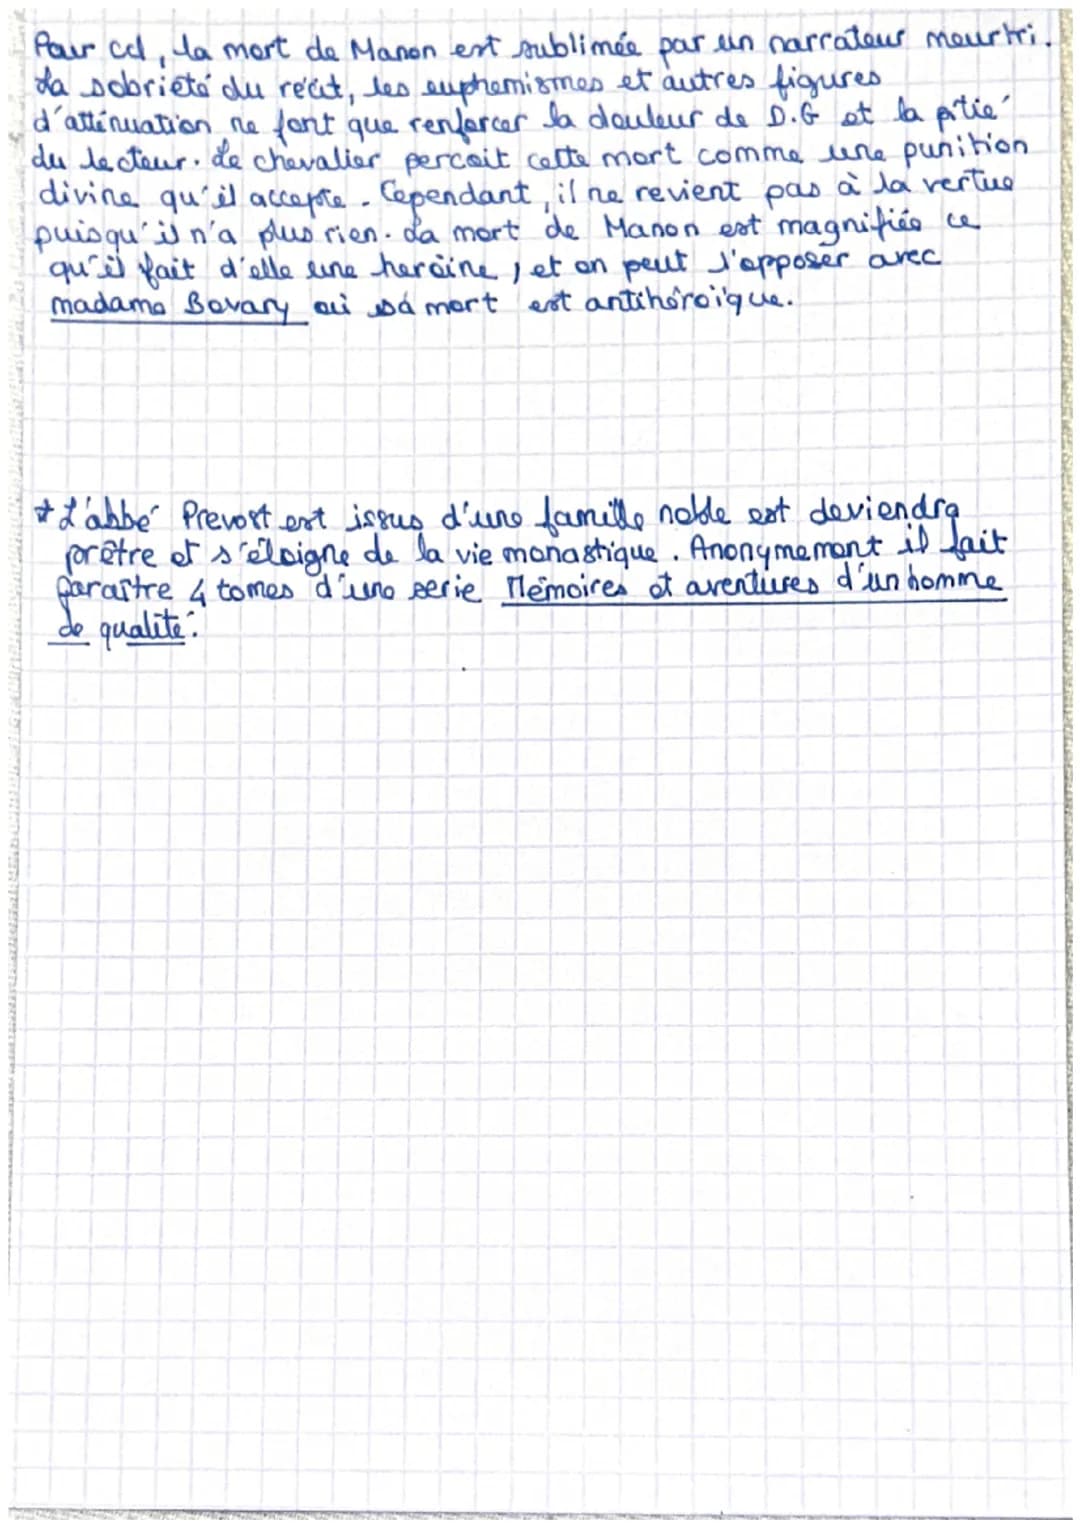 Pour ccl, la mort de Manon est sublimée par un narrateur meurtri.
La sobrieté du récit, les euphemismes et autres figures
d'atténuation ne font que renforcer la douleur de D.G et la pitié
du lecteur. Le chevalier percoit cette mort comme une punition
divine qu'il accepte. Cependant, il ne revient pas à la vertue
puisqu'il n'a plus rien. La mort de Manon est magnifiée ce
qu'il fait d'elle une heroïne, et on peut l'opposer avec
madame Bovary oui sa mort est antihéroïque.
* L'abbé Prevost est issus d'une famille noble est deviendra
prêtre et s'éloigne de la vie monastique. Anonymement il fait
paraître 4 tomes d'une serie Mémoires et aventures d'un homme
de qualité.